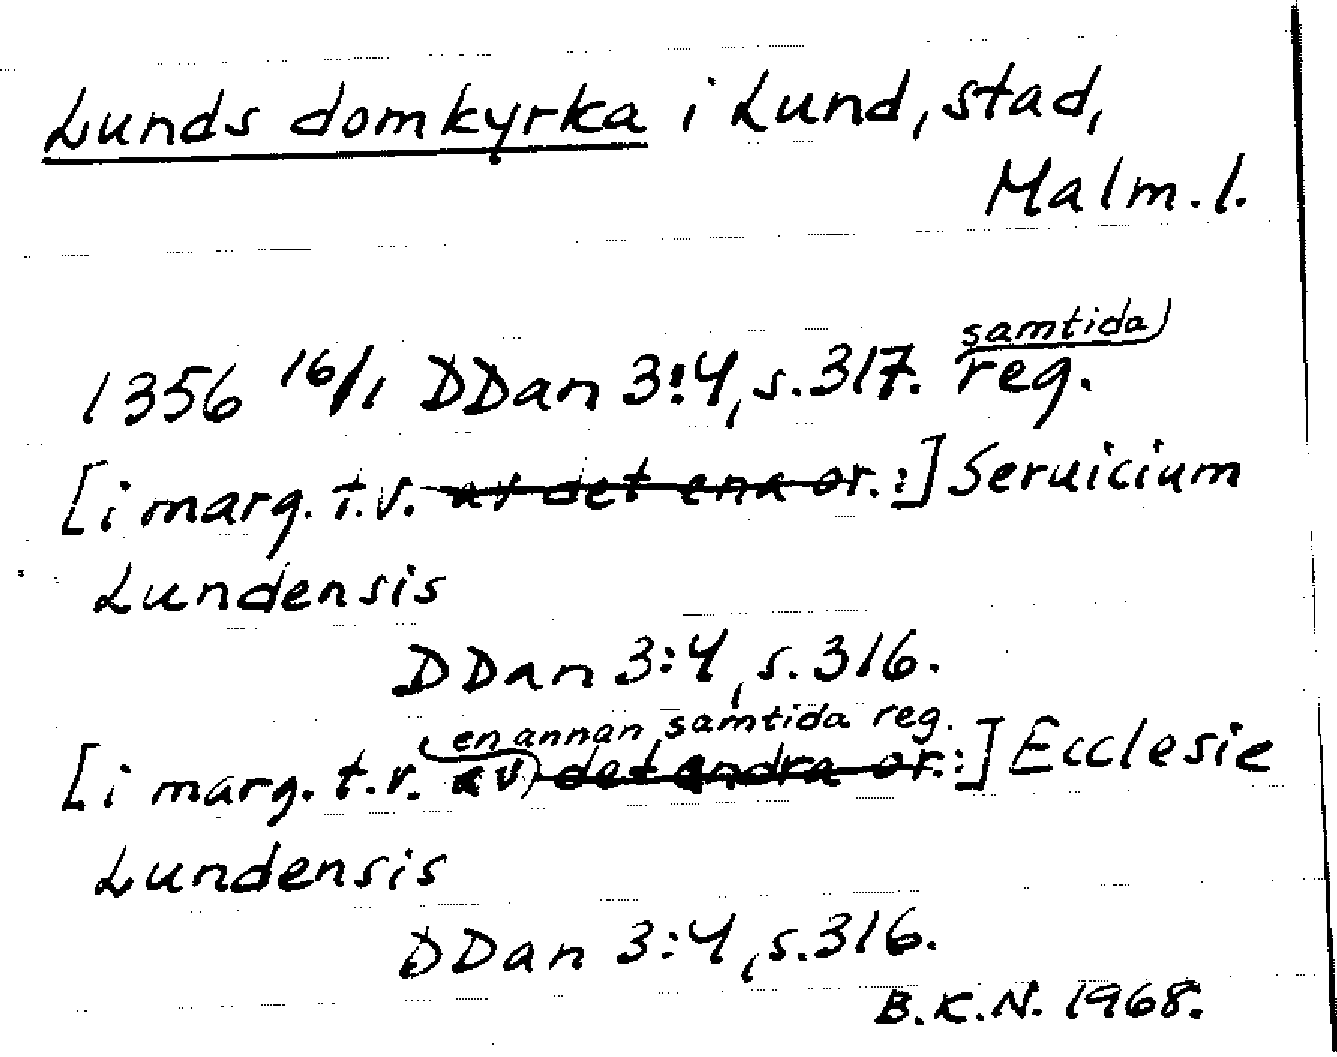 Lunds domkyrka i Lund, stad,
Malm. l.
samtida
1356 16/1 DDan 3:4, s. 317. reg.
[i marg. t.v. av det ena or.:] Seruicium
Lundensis
DDan 3:4, s. 316.
en annan samtida reg.
[i marg. t.v. av det andra or.:] Ecclesie
Lundensis
DDan 3:4, s. 316.
B.K.N. 1968.